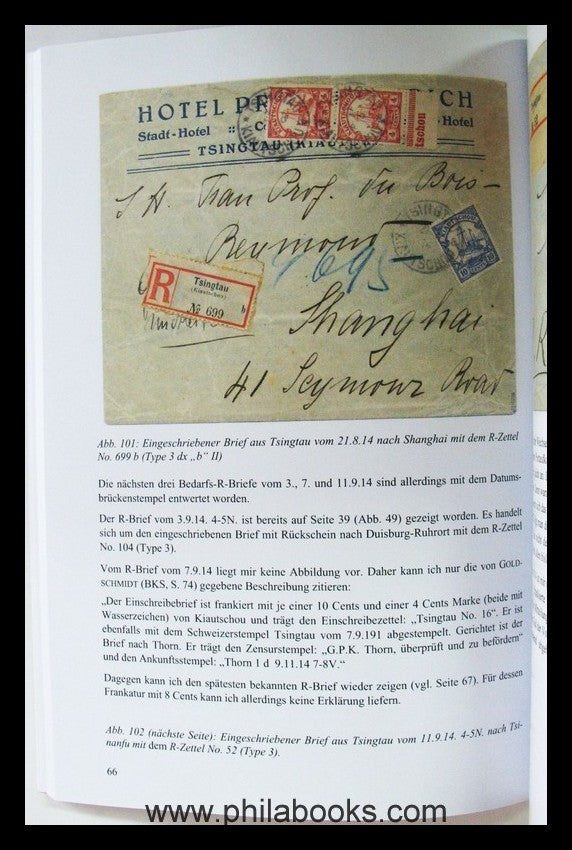 HOTEL PR CH
Stadt-Hotel
-Hotel
TSINGTAU (KIAUT
tschou
S. H. Frau Prof. du Bois-
Reymond
KIAUTSCHOU
10 CENTS 10
R
Tsingtau
(Kiautschou)
№ 699 b
Einschreiben
1695
Shanghai
41 Seymour Road
Abb. 101: Eingeschriebener Brief aus Tsingtau vom 21.8.14 nach Shanghai mit dem R-Zettel
No. 699 b (Type 3 dx „b“ II)
Die nächsten drei Bedarfs-R-Briefe vom 3., 7. und 11.9.14 sind allerdings mit dem Datums-
brückenstempel entwertet worden.
Der R-Brief vom 3.9.14. 4-5N. ist bereits auf Seite 39 (Abb. 49) gezeigt worden. Es handelt
sich um den eingeschriebenen Brief mit Rückschein nach Duisburg-Ruhrort mit dem R-Zettel
No. 104 (Type 3).
Vom R-Brief vom 7.9.14 liegt mir keine Abbildung vor. Daher kann ich nur die von GOLD-
SCHMIDT (BKS, S. 74) gegebene Beschreibung zitieren:
„Der Einschreibebrief ist frankiert mit je einer 10 Cents und einer 4 Cents Marke (beide mit
Wasserzeichen) von Kiautschou und trägt den Einschreibezettel: „Tsingtau No. 16“. Er ist
ebenfalls mit dem Schweizerstempel Tsingtau vom 7.9.191 abgestempelt. Gerichtet ist der
Brief nach Thorn. Er trägt den Zensurstempel: „G.P.K. Thorn, überprüft und zu befördern“
und den Ankunftsstempel: „Thorn 1 d 9.11.14 7-8V.“
Dagegen kann ich den spätesten bekannten R-Brief wieder zeigen (vgl. Seite 67). Für dessen
Frankatur mit 8 Cents kann ich allerdings keine Erklärung liefern.
Abb. 102 (nächste Seite): Eingeschriebener Brief aus Tsingtau vom 11.9.14. 4-5N. nach Tsi-
nanfu mit dem R-Zettel No. 52 (Type 3).
66
www.philabooks.com